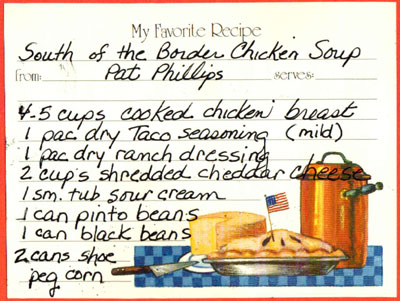 My Favorite Recipe
South of the Border Chicken Soup
from: Pat Phillips serves:
4-5 cups cooked chicken breast
1 pac dry Taco seasoning (mild)
1 pac dry ranch dressing
2 cups shredded cheddar cheese
1 sm. tub sour cream
1 can pinto beans
1 can black beans
2 cans shoe
peg corn